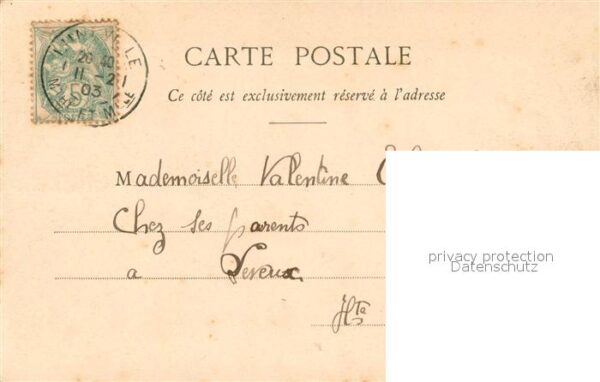 LUNÉVILLE
20 40
11 -2
03
MTHE ET MLLE
CARTE POSTALE
Ce côté est exclusivement réservé à l'adresse
Mademoiselle Valentine
Chez ses parents
a Vereux
Hte
privacy protection
Datenschutz